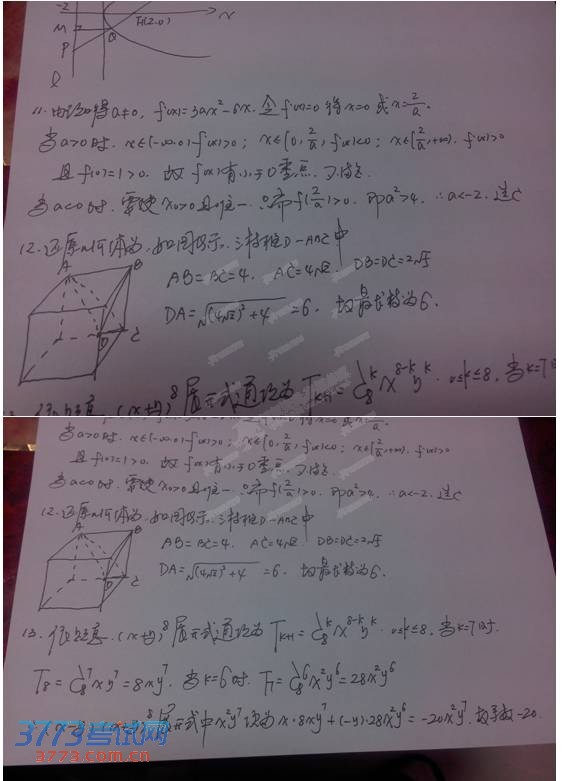 -2 x
M Q F(2,0)
P
l
11. 由题可得a≠0, f'(x)=3ax²-6x. 令f'(x)=0 得x=0或x=2/a.
当a>0时. x∈(-∞,0) f'(x)>0; x∈(0,2/a) f'(x)<0; x∈(2/a,+∞). f'(x)>0
且f(0)=1>0. 故f(x)有小于0零点.
当a<0时. 需使x₀>0且唯一. 只需f(2/a)>0. 即a²>4. ∴a<-2. 选C
12. 还原几何体为. 如图所示. 三棱锥D-ABC中
A B
AB=BC=4. AC=4√2. DB=DC=2√5
DA=√(4√2)²+4 =6. 故最长棱为6.
D C
(x+y)⁸展开式通项为 T_{k+1}=C₈ᵏx^{8-k}yᵏ. 0≤k≤8. 当k=7时
当a>0时. x∈(-∞,0) f'(x)>0; x∈(0,2/a) f'(x)<0; x∈(2/a,+∞). f'(x)>0
且f(0)=1>0. 故f(x)有小于0零点.
当a<0时. 需使x₀>0且唯一. 只需f(2/a)>0. 即a²>4. ∴a<-2. 选C
12. 还原几何体为. 如图所示. 三棱锥D-ABC中
A B
AB=BC=4. AC=4√2. DB=DC=2√5
DA=√(4√2)²+4 =6. 故最长棱为6.
D C
13. 依题意. (x+y)⁸展开式通项为 T_{k+1}=C₈ᵏx^{8-k}yᵏ. 0≤k≤8. 当k=7时.
T₈=C₈⁷xy⁷=8xy⁷. 当k=6时. T₇=C₈⁶x²y⁶=28x²y⁶
(x-y)(x+y)⁸展开式中x²y⁷项为x·8xy⁷+(-y)·28x²y⁶=-20x²y⁷. 故系数-20.
3773考试网
3773.com.cn